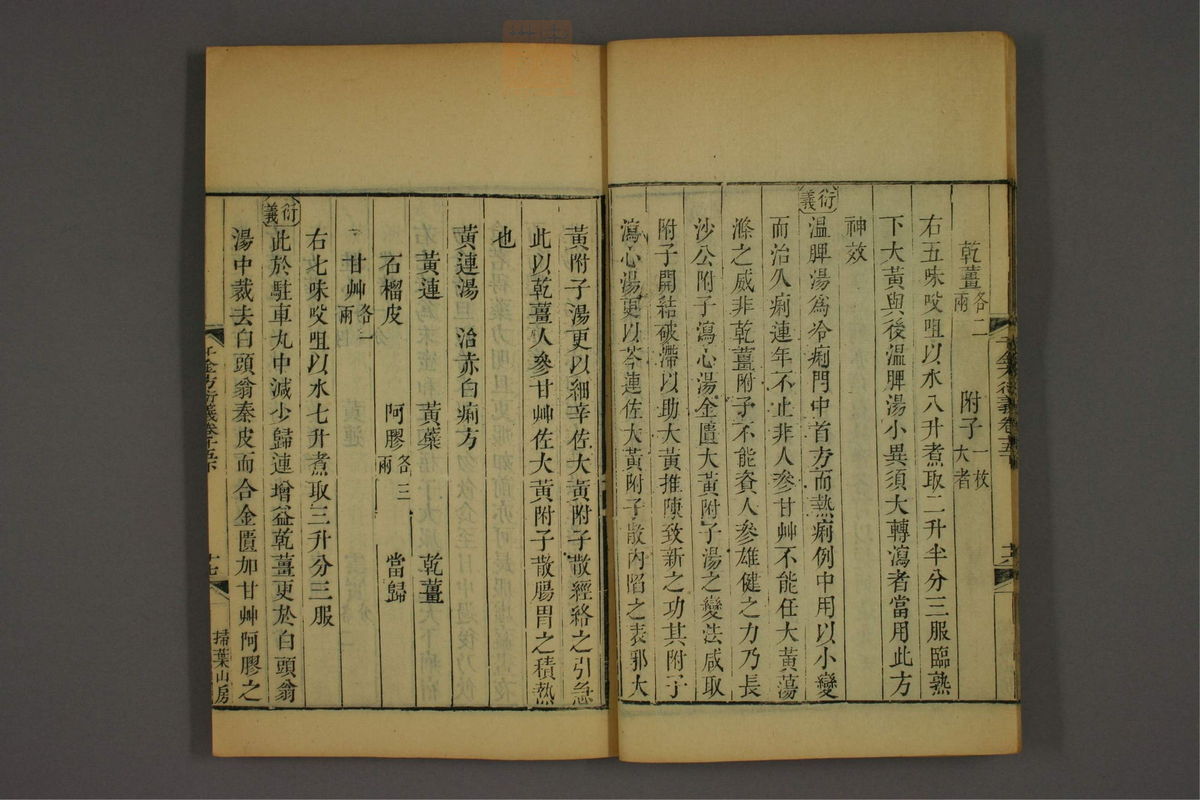 乾薑各二兩 附子一枚大者
右五味㕮咀以水八升煮取二升半分三服臨熟
下大黃與後溫脾湯小異須大轉瀉者當用此方
神效
衍義
溫脾湯為冷痢門中首方而熱痢例中用以小變
而治久痢連年不止非人參甘艸不能任大黃蕩
滌之威非乾薑附子不能資人參雄健之力乃長
沙公附子瀉心湯金匱大黃附子湯之變法咸取
附子開結破滯以助大黃推陳致新之功其附子
瀉心湯更以芩連佐大黃附子散內陷之表邪大
千金方衍義卷十五下
黃附子湯更以細辛佐大黃附子散經絡之引急
此以乾薑人參甘艸佐大黃附子散腸胃之積熱
也
黃連湯 治赤白痢方
黃連 黃蘗 乾薑
石榴皮 阿膠各三兩 當歸
甘艸各二兩
右七味㕮咀以水七升煮取三升分三服
衍義
此於駐車丸中減少歸連增益乾薑更於白頭翁
湯中裁去白頭翁秦皮而合金匱加甘艸阿膠之
千金方衍義卷十五下
十七
掃葉山房